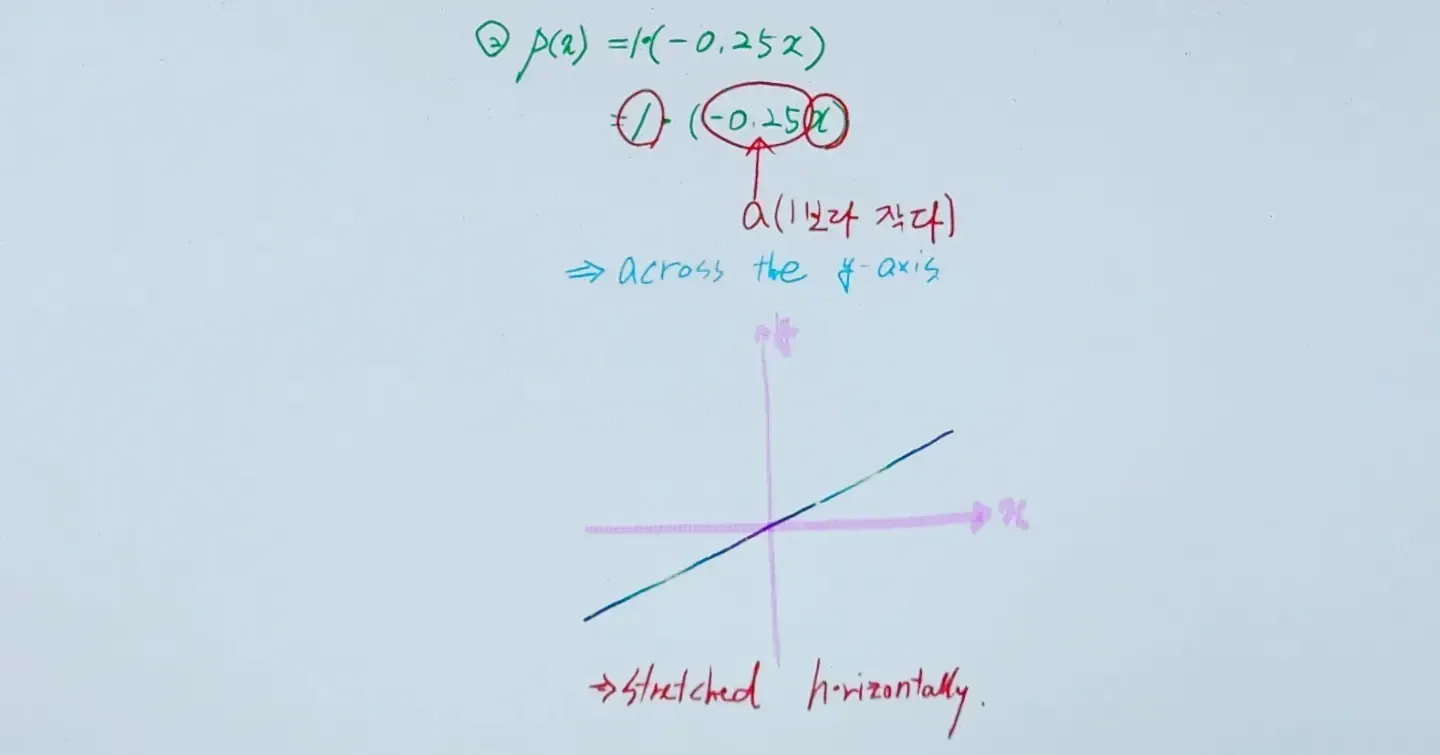 ② p(x) = 1·(-0.25x)
= 1· (-0.25x)
a(1보다 작다)
⇒ across the y-axis
y
x
→ stretched horizontally.